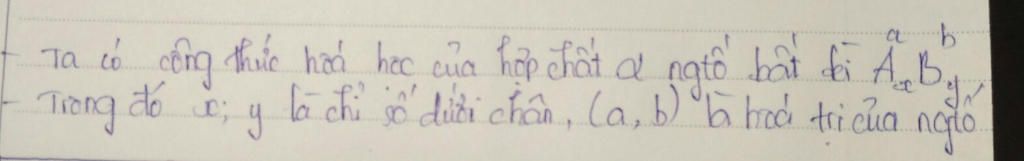 - Ta có công thức hoá học của hợp chất 2 ngtố bất kì AᵃₓBᵇᵧ
- Trong đó x; y là chỉ số dưới chân, (a, b) là hoá trị của ngtố